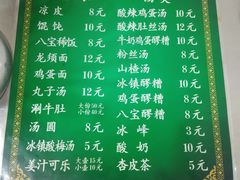 凉皮 8元
馄饨 10元
八宝稀饭 8元
龙须面 12元
鸡蛋面 12元
丸子汤 12元
涮牛肚 大份50元 小份40元
汤圆 8元
冰镇酸梅汤 5元
姜汁可乐 大壶15元 小壶10元
酸辣鸡蛋汤 10元
酸辣肚丝汤 12元
牛奶鸡蛋醪糟 10元
粉丝汤 8元
山楂汤 8元
冰镇醪糟 8元
鸡蛋醪糟 8元
八宝醪糟 8元
冰峰 3元
酸奶 10元
杏皮茶 5元